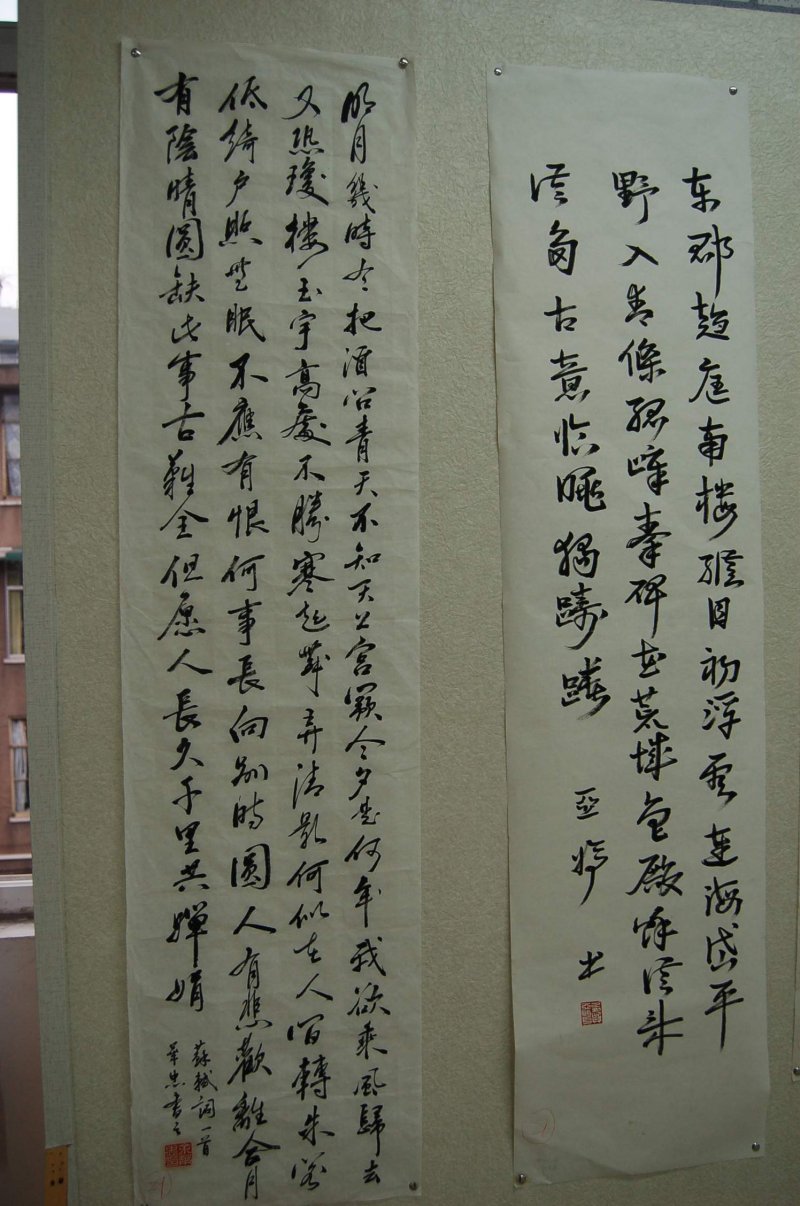 东郡趋庭南楼纵目初浮云连海岱平
野入青條孤嶂秦碑在荒城鲁殿馀從来
從多古意临眺独踌躇
亚婷书
明月幾時有把酒问青天不知天上宫阙今夕是何年我欲乘風歸去
又恐瓊楼玉宇高處不勝寒起舞弄清影何似在人间轉朱阁
低綺户照無眠不應有恨何事長向别時圓人有悲歡離合月
有陰晴圓缺此事古難全但愿人長久千里共嬋娟
蘇軾詞一首
華忠書之